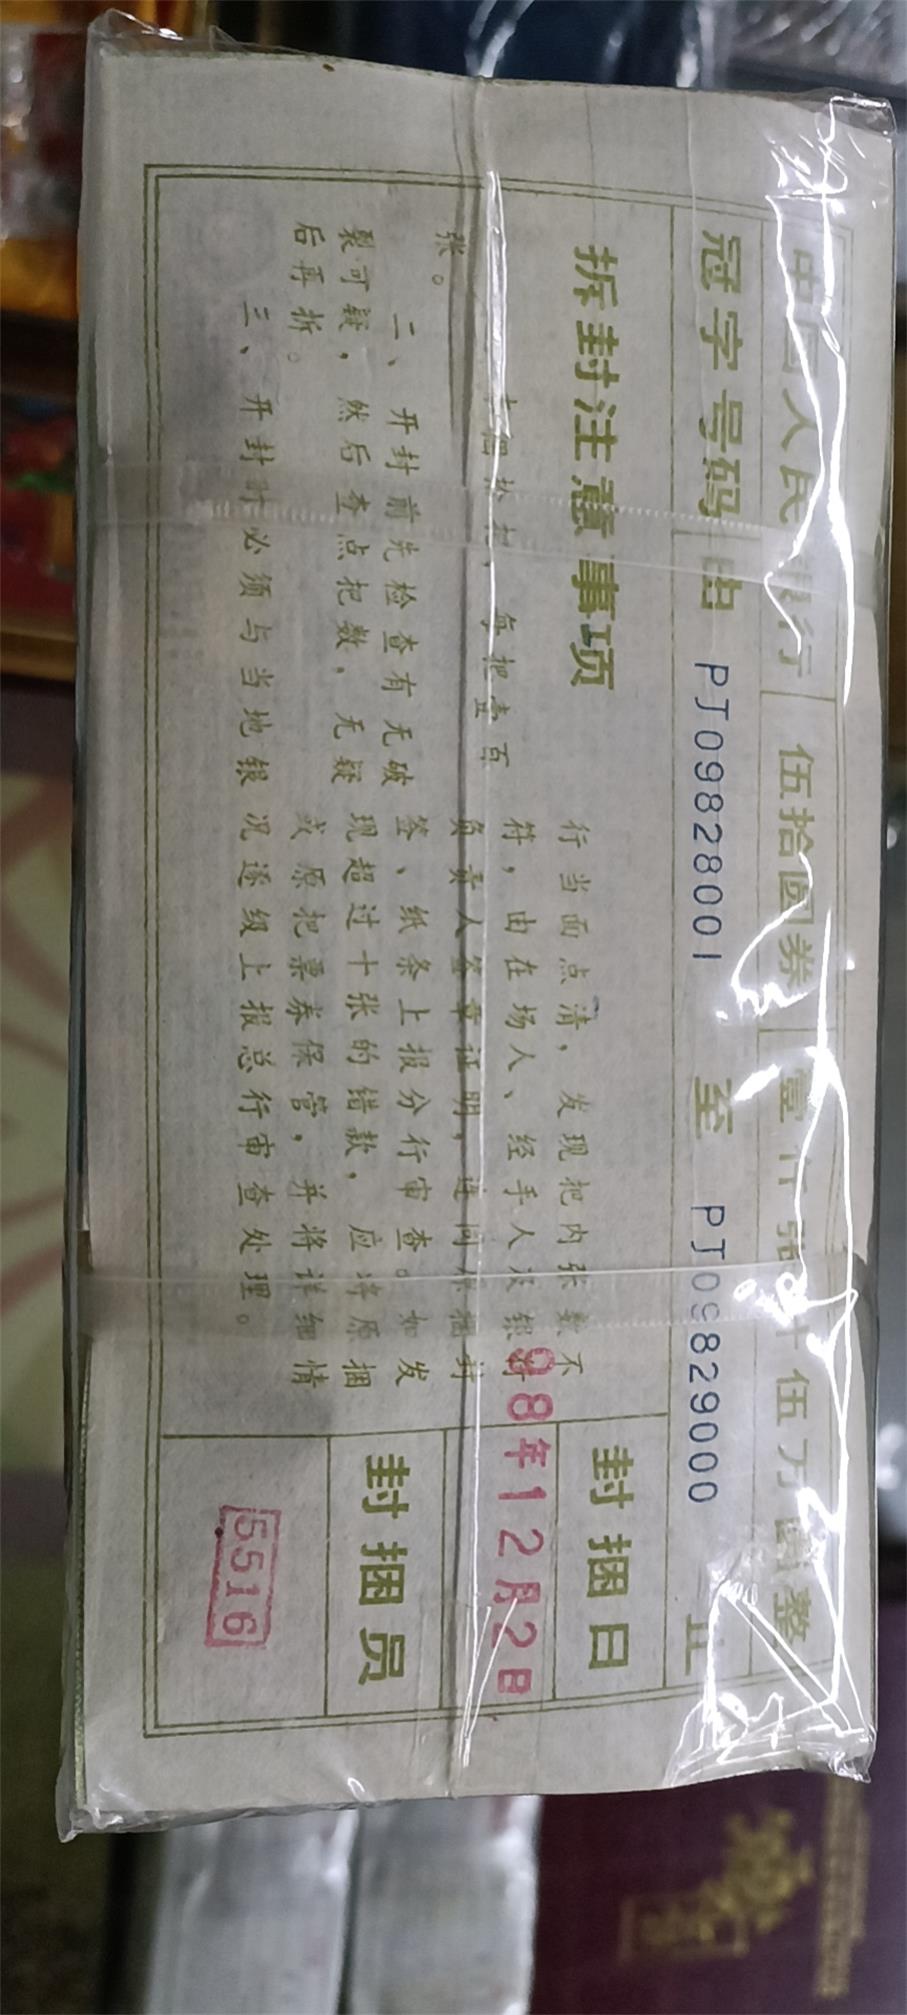 中国人民银行 伍拾圆券 壹仟张计伍万圆整
冠字号码 由 PJ09828001 至 PJ09829000 止
拆封注意事项
本捆拾把，每把壹百
张。
二、开封前先检查有无破
裂可疑，然后查点把数，无疑
后再拆。
三、开封时必须与当地银
行当面点清，发现把内张数不
符，由在场人、经手人及银行
负责人签章证明，连同原捆封
签、纸条上报分行审查。如发
现超过十张的错款，应将原捆
或原把票券保管，并将详细情
况逐级上报总行审查处理。
封捆日
98年12月2日
封捆员
5516